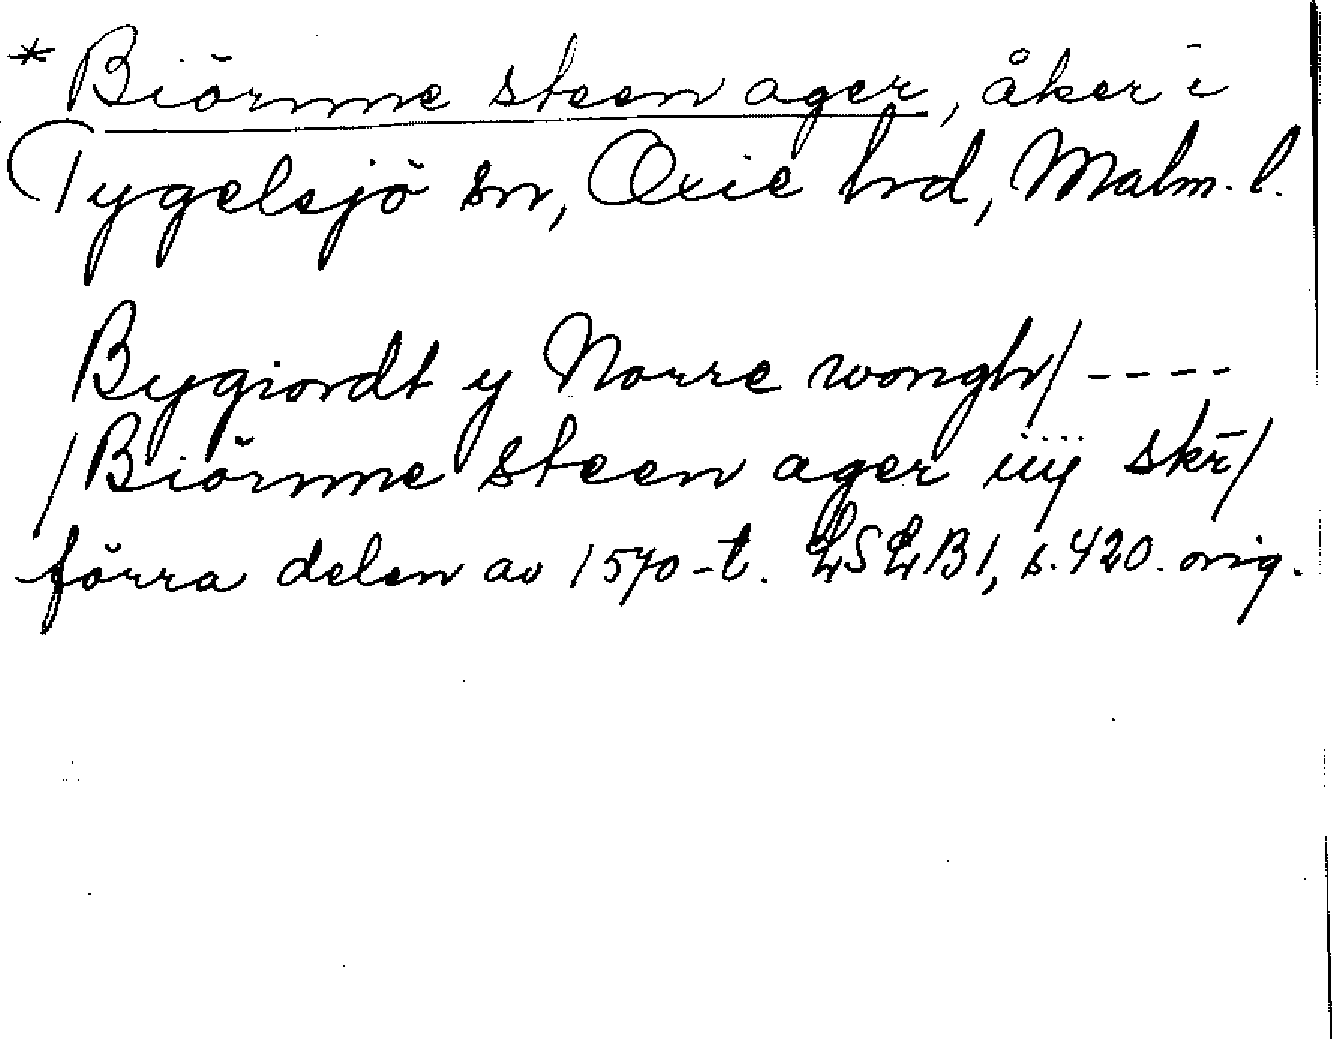 * Biörnne steen ager, åker i
Tygelsjö sn, Oxie hrd, Malm. l.
Bygiordt y Norre wongh/ ----
/Biörnne steen ager iiij skr̄/
förra delen av 1570-t. LSLB1, s. 420. orig.